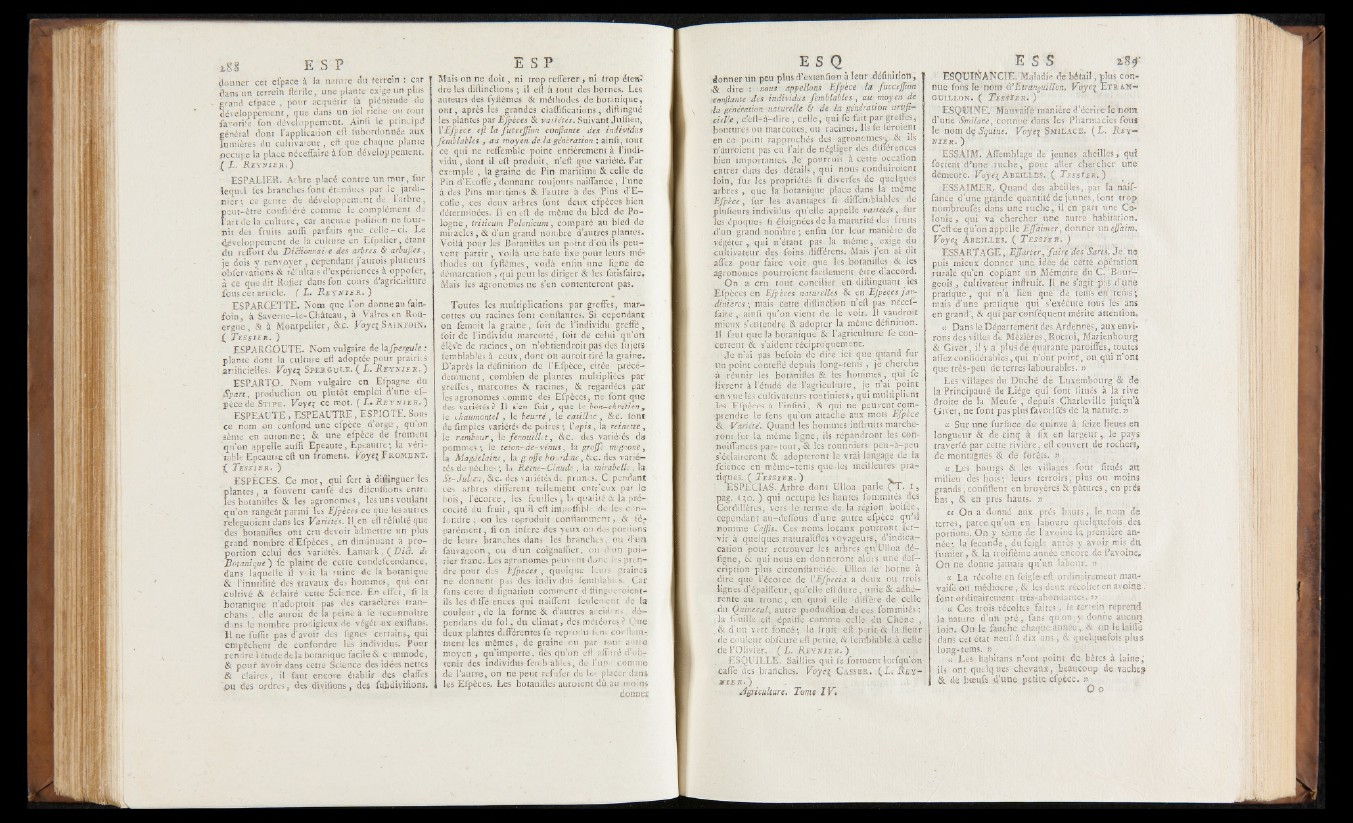 188 E S P
donner cet eſpace à la nature du terrein : car
dans un terrein ſtérile, une plante exige un plus
grand eſpace, pour acquérir la plénitude de
développement, que dans un ſol riche où tout
favoriſe ſon développement. Ainſi le principe
général dont l'application eſt ſubordonnée aux
lumières du cultivateur, eſt que chaque plante
occupe la place néceſſaire à ſon développement.
( L. REYNIER. )
ESPALIER. Arbre placé contre un mur, ſur
lequel ſes branches ſont étendues par le jardi-
nier ; ce genre de développement de l'arbre,
peut-être conſidéré comme le complément de
l'art de la culture, car aucune poſition ne four-
nit des fruits auſſi parfaits que celle-ci. Le
développement de la culture en Eſpalier, étant
du reſſort du Dictionnaire des arbres & arbuſtes,
je dois y renvoyer, cependant j'aurois pluſieurs
obſervations & réſultats d'expériences à oppoſer,
à ce que dit Rozier dans ſon cours d'agriculture
ſous cet article. ( L. REYNIER. )
ESPARCETTE. Nom que l'on donne au ſain-
foin, à Saverne-le-Château, à Valres en Rou-
ergue, & à Montpellier, &c. Voyez SAINFOIN.
( TESSIER. )
ESPARGOUTE. Nom vulgaire de la ſpergule :
plante dont la culture eſt adoptée pour prairies
artificielles. Voyez SPERGULE. ( L. REYNIER. )
ESPARTO. Nom vulgaire en Eſpagne du
Spart, production ou plutôt emploi d'une eſ-
pèce de STIPE. Voyez ce mot. ( L. REYNIER. )
ESPEAUTE, ESPEAUTRE, ESPIOTE. Sous
ce nom on confond une eſpèce d'orge, qu'on
sème en automne ; & une eſpèce de froment
qu'on appelle auſſi Epeaute, Epeautre ; la véri-
table Epeautre eſt un froment. Voyez FROMENT.
( TESSIER. )
ESPÈCES. Ce mot, qui ſert à diſtinguer les
plantes, a ſouvent cauſé des diſcuſſions entre
les botaniſtes & les agronomes, les uns voulant
qu'on rangeât parmi les Eſpèces ce que les autres
releguoient dans les Variétés. Il en eſt réſulté que
des botaniſtes ont cru devoir admettre un plus
grand nombre d'Eſpèces, en diminuant à pro-
portion celui des variétés. Lamark, ( Dict. de
Botanique ) ſe plaint de cette condeſcendance,
dans laquelle il voit la ruine de la botanique
& l'inutilité des travaux des hommes, qui ont
cultivé & éclairé cette Science. En effet, ſi la
botanique n'adoptoit pas des caractères tran-
chans, elle auroit de la peine à ſe reconnoître
dans le nombre prodigieux de végétaux exiſtans.
Il ne ſuffit pas d'avoir des ſignes certains, qui
empêchent de confondre les individus. Pour
rendre l'étude de la botanique facile & commode,
& pour avoir dans cette Science des idées nettes
& claires, il faut encore établir des claſſes
ou des ordres, des diviſions, des ſubdiviſions.
E S P
Mais on ne doit, ni trop reſſerrer, ni trop éten-
dre les diſtinctions ; il eſt à tout des bornes. Les
auteurs des ſyſtêmes & méthodes de botanique,
ont, après les grandes claſſifications, diſtingué
les plantes par Eſpèces & variétés. Suivant Juſſieu,
l'Eſpèce eſt la ſucceſſion conſtante des individus
ſemblables, au moyen de la génération : ainſi, tout
ce qui ne reſſemble point entièrement à l'indi-
vidu, dont il eſt produit, n'eſt que variété. Par
exemple, la graine de Pin maritime & celle de
Pin d'Ecoſſe, donnant toujours naiſſance, l'une
à des Pins maritimes & l'autre à des Pins d'E-
coſſe, ces deux arbres ſont deux eſpèces bien
déterminées. Il en eſt de même du bled de Po-
logne, triticum Polonicum, comparé au bled de
miracles, & d'un grand nombre d'autres plantes.
Voilà pour les Botaniſtes un point d'où ils peu-
vent partir, voilà une baſe fixe pour leurs mé-
thodes ou ſyſtêmes, voilà enfin une ligne de
démarcation, qui peut les diriger & les ſatisfaire.
Mais les agronomes ne s'en contenteront pas.
Toutes les multiplications par greffes, mar-
cottes ou racines ſont conſtantes. Si cependant
on ſemoit la graine, ſoit de l'individu greffé,
ſoit de l'individu marcotté, ſoit de celui qu'on
élève de racines, on n'obtiendroit pas des ſujets
ſemblables à ceux, dont on auroit tiré la graine.
D'après la définition de l'Eſpèce, citée précé-
demment, combien de plantes multipliées par
greffes, marcottes & racines, & regardées par
les agronomes comme des Eſpèces, ne ſont que
des variétés ? Il s'en ſuit, que le bon-chrétien,
le chaumontel, le beurré, le catillac, &c. ſont
de ſimples variétés de poires ; l'apis, la reinette,
le rambour, le fenouillet, &c. des variétés de
pommes ; le teton-de-venus, la groſſe mignone,
la Magdeleine, la groſſe bourdine, &c. des varié-
tés de pêches ; la Reine-Claude, la mirabelle, la
St-Julien, &c. des variétés de prunes. Cependant
ces arbres diffèrent tellement entr'eux par le
bois, l'écorce, les feuilles, la qualité & la pré-
cocité du fruit, qu'il eſt impoſſible de les con-
fondre ; on les reproduit conſtamment, & ſé-
parément, ſi on inſère des yeux ou des portions
de leurs branches dans les branches, ou d'un
ſauvageon, ou d'un coignaſſier, ou d'un poi-
rier franc. Les agronomes peuvent donc les pren-
dre pour des Eſpèces, quoique leurs graines
ne donnent pas des individus ſemblables. Car
ſans cette déſignation comment diſtingueroient-
ils les différences qui naiſſent ſeulement de la
couleur, de la forme & d'autres accidens, dé-
pendans du ſol, du climat, des météores ? Que
deux plantes différentes ſe reproduiſent conſtam-
ment les mêmes, de graine ou par tout autre
moyen, qu'importe, dès qu'on eſt aſſuré d'ob-
tenir des individus ſemblables, de l'une comme
de l'autre, on ne peut refuſer de les placer dans
les Eſpèces. Les botaniſtes auroient dû au moins
donner
E S Q
donner un peu plus d'extenſion à leur définition,
& dire : nous appellons Eſpèce la ſucceſſion
conſtante des individus ſemblables, au moyen de
la génération naturelle & de la génération artifi-
cielle, c'eſt-à-dire, celle, qui ſe fait par greffes,
boutures ou marcottes, ou racines. Ils ſe ſeroient
en ce point rapprochés des agronomes, & ils
n'auroient pas eu l'air de négliger des différences
bien importantes. Je pourrois à cette occaſion
entrer dans des détails, qui nous conduiroient
loin, ſur les propriétés ſi diverſes de quelques
arbres, que la botanique place dans la même
Eſpèce, ſur les avantages ſi diſſemblables de
pluſieurs individus qu'elle appelle variétés, ſur
les époques ſi éloignées de la maturité des fruits
d'un grand nombre ; enfin ſur leur manière de
végéter, qui n'étant pas la même, exige du
cultivateur des ſoins différens. Mais j'en ai dit
aſſez pour faire voir que les botaniſtes & les
agronomes pourroient facilement être d'accord.
On a cru tout concilier en diſtinguant les
Eſpèces en Eſpèces naturelles & en Eſpèces jar-
dinières ; mais cette diſtinction n'eſt pas néceſ-
ſaire, ainſi qu'on vient de le voir. Il vaudroit
mieux s'entendre & adopter la même définition.
Il faut que la botanique & l'agriculture ſe con-
certent & s'aident réciproquement.
Je n'ai pas beſoin de dire ici que quand ſur
un point conteſté depuis long-tems, je cherche
à réunir les botaniſtes & les hommes, qui ſe
livrent à l'étude de l'agriculture, je n'ai point
en vue les cultivateurs routiniers, qui multiplient
les Eſpèces à l'infini, & qui ne peuvent com-
prendre le ſens qu'on attache aux mots Eſpèce
& Variété. Quand les hommes inſtruits marche-
ront ſur la même ligne, ils répandront les con-
noiſſances par-tout, & les routiniers peu-à-peu
s'éclaireront & adopteront le vrai langage de la
ſcience en même-tems que les meilleures pra-
tiques. ( TESSIER. )
ESPECIAS. Arbre dont Ulloa parle (T. 1,
pag. 130. ) qui occupe les hautes ſommités des
Cordilières, vers le terme de la région boiſée,
cependant au-deſſous d'une autre eſpèce qu'il
nomme Caſſis. Ces noms locaux pourront ſer-
vir à quelques naturaliſtes voyageurs, d'indica-
cation pour retrouver les arbres qu'Ulloa dé-
ſigne, & qui nous en donneront alors une deſ-
cription plus circonſtanciée. Ulloa ſe borne à
dire que l'écorce de l'Eſpecia a deux ou trois
lignes d'épaiſſeur, qu'elle eſt dure, unie & adhé-
rente au tronc, en quoi elle diffère de celle
du Quinoal, autre production de ces ſommités :
la feuille eſt épaiſſe comme celle du Chêne,
& d'un vert foncé ; le fruit eſt petit & la fleur
de couleur obſcure eſt petite, & ſemblable à celle
de l'Olivier. ( L. REYNIER. )
ESQUILLE. Saillies qui ſe forment lorſqu'on
caſſe des branches. Voyez CASSER. ( L. REY-
NIER. )
Agriculture. Tome IV.
E S S 289
ESQUINANCIE. Maladie de bétail, plus con-
nue ſous le nom d'Etranguillon. Voyez ETRAN-
GUILLON. ( TESSIER. )
ESQUINE. Mauvaiſe manière d'écrire le nom
d'une Smilace, connue dans les Pharmacies ſous
le nom de Squine. Voyez SMILACE. ( L. REY-
NIER. )
ESSAIM. Aſſemblage de jeunes abeilles, qui
ſortent d'une ruche, pour aller chercher une
demeure. Voyez ABEILLES. ( TESSIER. )
ESSAIMER. Quand des abeilles, par la naiſ-
ſance d'une grande quantité de jeunes, ſont trop
nombreuſes dans une ruche, il en part une Co-
lonie, qui va chercher une autre habitation.
C'eſt ce qu'on appelle Eſſaimer, donner un eſſaim.
Voyez ABEILLES. ( TESSIER. )
ESSARTAGE, Eſſarter, faire des Sarts. Je ne
puis mieux donner une idée de cette opération
rurale qu'en copiant un Mémoire du C. Bour-
geois, cultivateur inſtruit. Il ne s'agit pas d'une
pratique, qui n'a lieu que de tems en tems ;
mais d'une pratique qui s'exécute tous les ans
en grand, & qui par conſéquent mérite attention.
« Dans le Département des Ardennes, aux envi-
rons des villes de Mézières, Rocroi, Marienbourg
& Givet, il y a plus de quarante paroiſſes, toutes
aſſez conſidérables, qui n'ont point, ou qui n'ont
que très-peu de terres labourables. »
Les villages du Duché de Luxembourg & de
la Principauté de Liége qui ſont ſitués à la rive
droite de la Meuſe, depuis Charleville juſqu'à
Givet, ne ſont pas plus favoriſés de la nature. »
« Sur une ſurface de quinze à ſeize lieues en
longueur & de cinq à ſix en largeur, le pays
traverſé par cette rivière, eſt couvert de rochers,
de montagnes & de forêts. »
« Les bourgs & les villages ſont ſitués au
milieu des bois ; leurs terroirs, plus ou moins
grands, conſiſtent en bruyères & pâtures, en prés
bas, & en prés hauts. »
« On a donné aux prés hauts, le nom de
terres, parce qu'on en laboure quelquefois des
portions. On y sème de l'avoine la première an-
née ; la ſeconde, du ſeigle après y avoir mis du
fumier, & la troiſième année encore de l'avoine.
On ne donne jamais qu'un labour. »
« La récolte en ſeigle eſt ordinairement mau-
vaiſe ou médiocre, & les deux récoltes en avoine
ſont ordinairement très-abondantes. »
« Ces trois récoltes faites, le terrein reprend
la nature d'un pré, ſans qu'on y donne aucun
ſoin. On le fauche chaque année, & on le laiſſe
dans cet état neuf à dix ans, & quelquefois plus
long-tems. »
« Les habitans n'ont point de bêtes à laine,
ils ont quelques chevaux, beaucoup de vaches
& de bœufs d'une petite eſpèce. »
O o